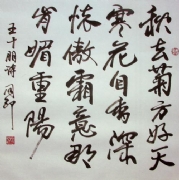 秋去菊方好天
寒花自香深
怀傲霜意那
肯媚重阳
王十朋诗